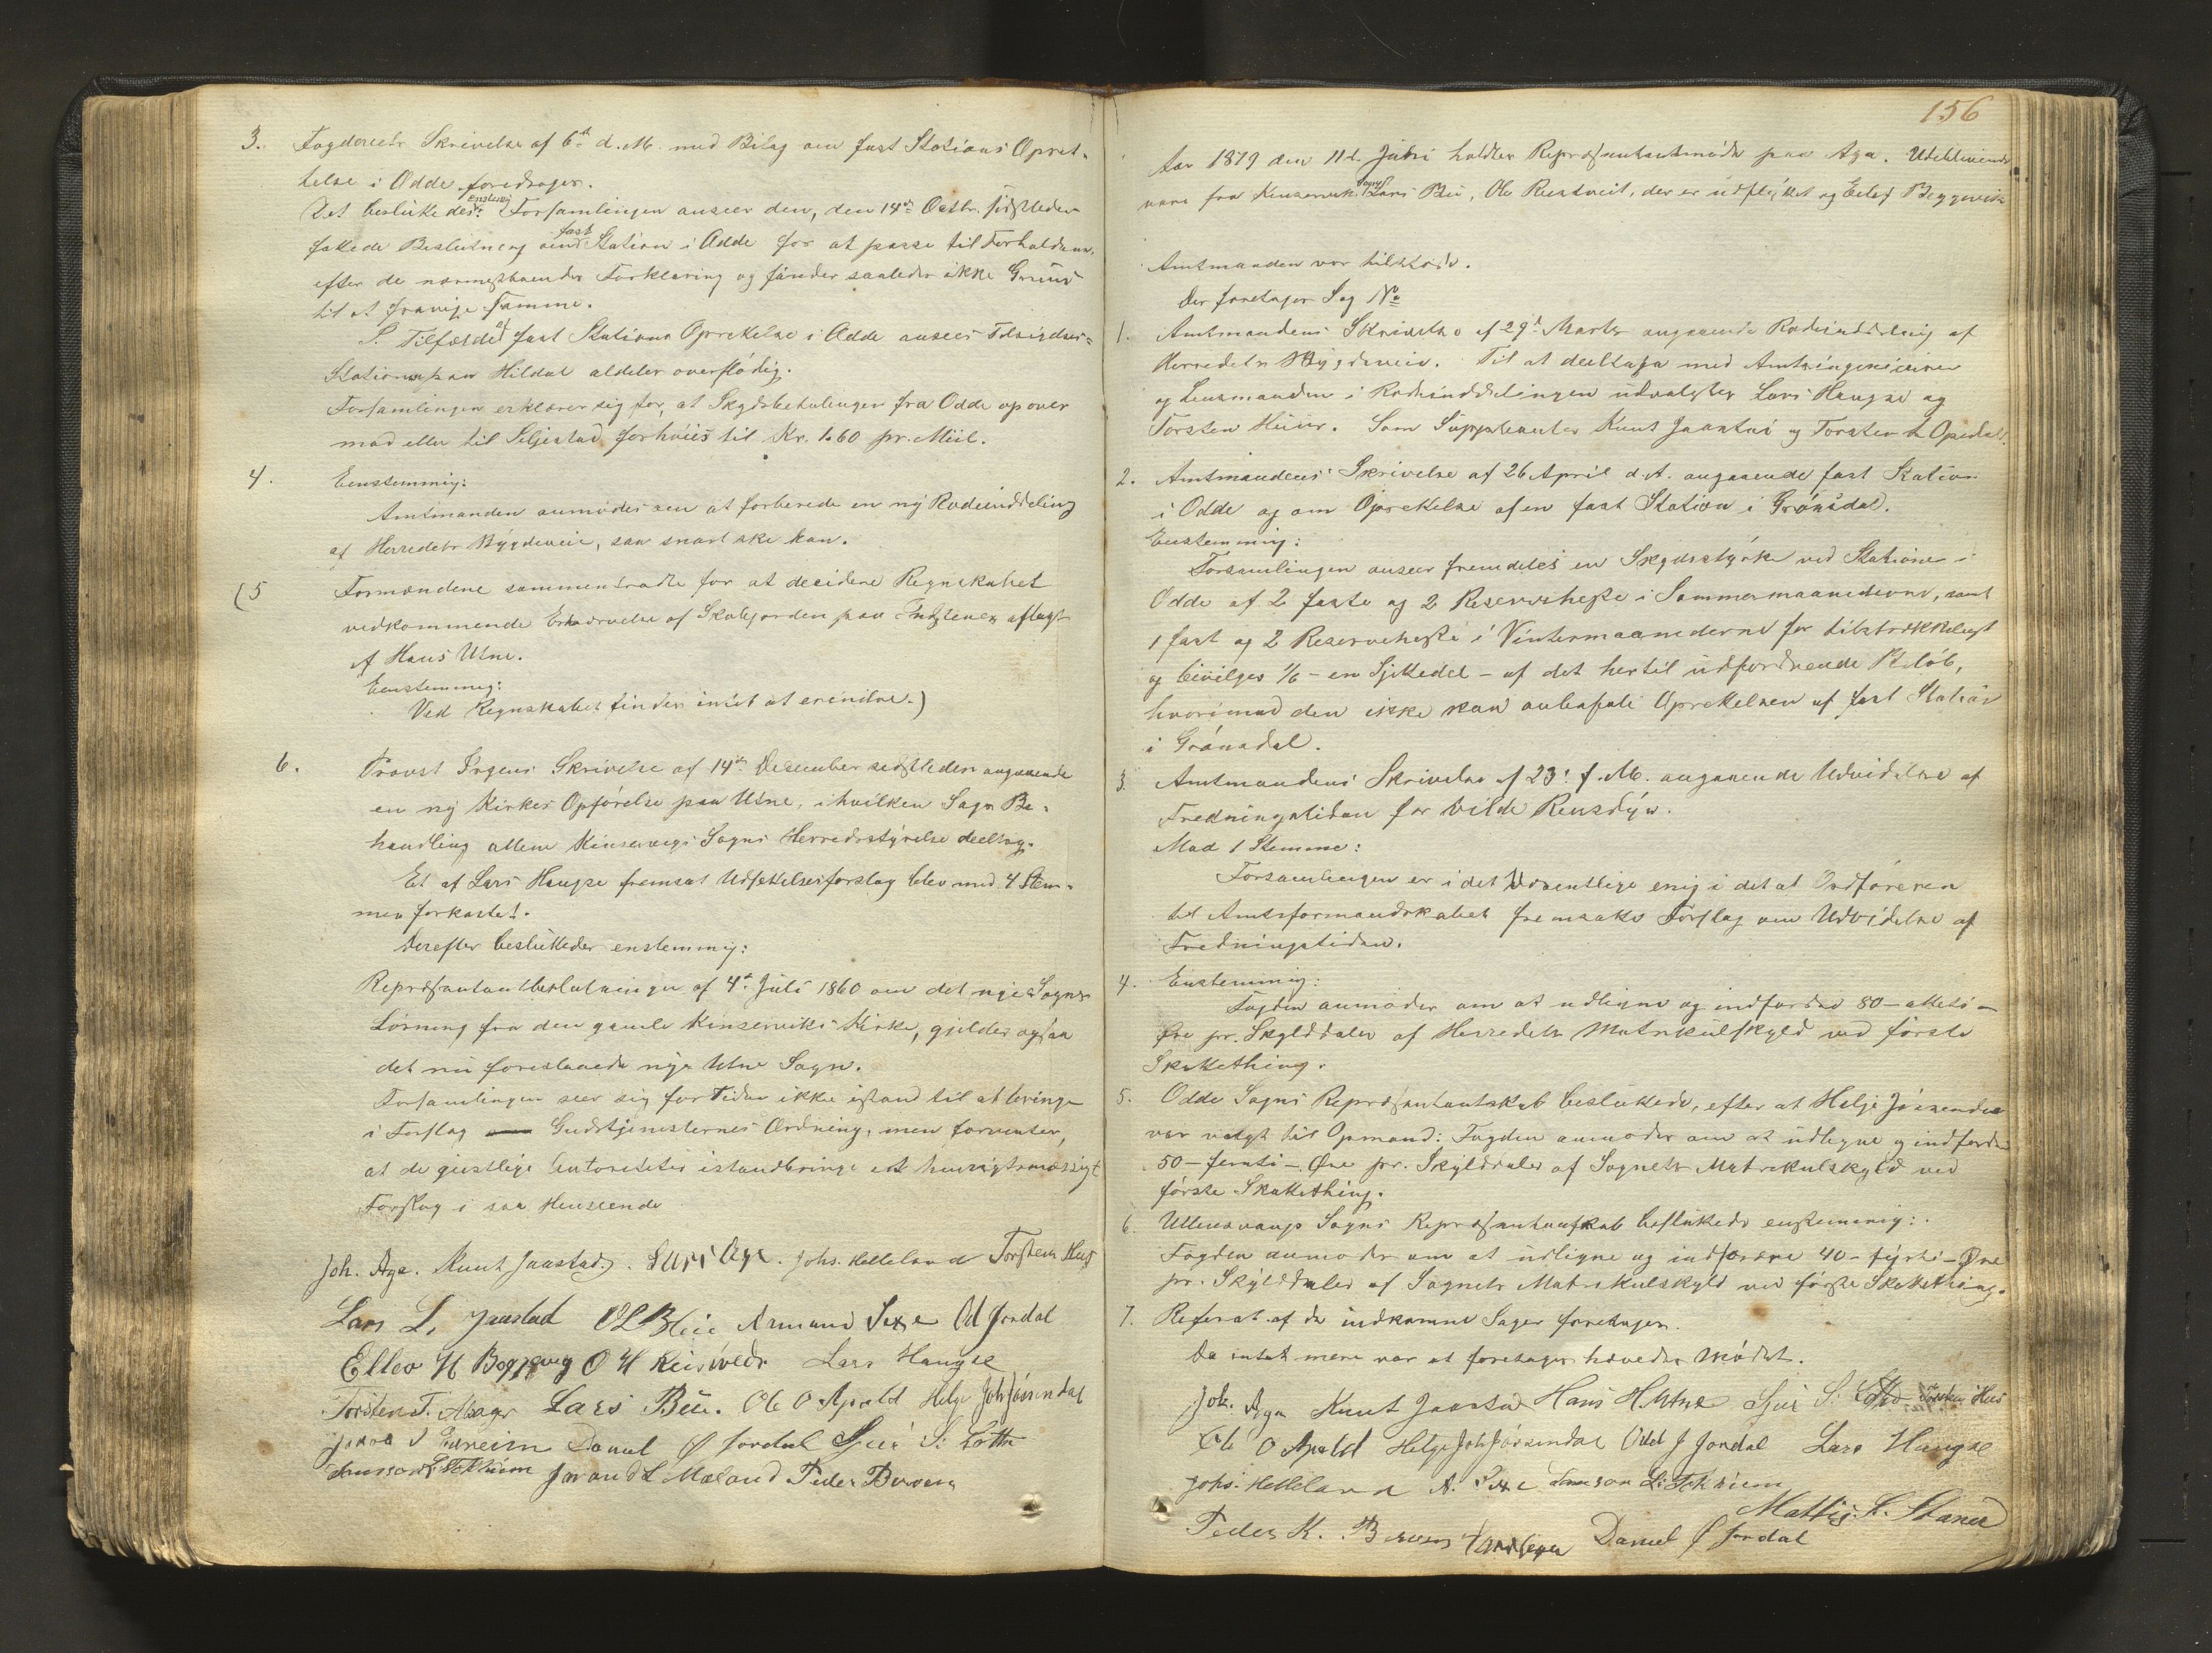 3. Fogderiets Skrivelse af 6te d. M. med Bilag om fast Stations Opret-
telse i Odde foredroges.
Det beslutte des: enstemmig Forsamlingen anseer den, den 14de Octbr. sidstleden
fattede Beslutning om fast Station i Odde for at passe til Forholdene,
efter de nærmestboendes Forklaring og finder saaledes ikke Grund
til at fravige samme.
I Tilfælde af fast Stations Oprettelse i Odde ansees Tilsigelses-
Stationen paa Hildal aldeles overflødig.
Forsamlingen erklærer sig for, at Skydsbetalingen fra Odde op over
mod eller til Seljestad forhøies til Kr. 1.60 pr. Miil.
4. Eenstemmig:
Amtmanden anmodes om at forberede en ny Rodeinddeling
af Herredets Bygdeveie, saa snart ske kan.
(5 Formændene sammentraadte for at decidere Regnskabet
vedkommende Erhvervelse af Skolejorden paa aflagt
af Hans Utne.
Eenstemmig:
Ved Regnskabet findes intet at erindre.)
6. Provst Skrivelse af 14de December sidstleden angaaende
en ny Kirkes Opførelse paa Utne, i hvilken Sags Be-
handling allene Kinservigs Sogns Herredsstyrelse deeltog.
Et af Lars Haugse fremsat Udsættelsesforslag blev med 4 Stem-
mer forkastet.
Derefter besluttedes enstemmig:
Repræsentantbeslutningen af 4de Juli 1860 om det nye Sogns
Løsning fra den gamle Kinserviks Kirke, gjelder ogsaa
det nu foreslaaede nye Utne Sogn.
Forsamlingen seer sig for Tiden ikke istand til at bringe
i Forslag Gudstjenesternes Ordning, men forventer,
at de geistlige Autoriteter istandbringe et hensigtsmæssigt
Forslag i saa Henseende
Joh. Aga. Knut Jaastad. Lars Aga. Johs. Helleland Torsten Huus
Lars L. Jaastad O L Bleie Aamund Sexe Od Jordal
Ellev H Beggevig O H Reisweds Lars Haugse
Torsten T. Lars Bu. Ole O Apold Helge Joh Jøsendal
Jakob Eidneim Daniel Ø Jordal Sjur S: Lotte
L Tokheim L Mæland Peder
156
Aar 1879 den 11te Juni holdtes Repræsentantmøde paa Aga. Udeblivende
vare fra Kinservik Sogn Lars Bu, Ole Reistveit, der er udflyttet og Eilef Beggevik
Amtmanden var tilstede.
Der foretoges Sag No
1. Amtmandens Skrivelse af 29de Marts angaaende Rodeinddeling af
Herredets Bygdeveie. Til at deeltage med Amtsingeniøren
og Lensmanden i Rodeinddelingen udvalgtes Lars Haugse og
Torsten Huus. Som Suppleanter Knut Jaastad og Torsten L Opedal.
2. Amtmandens Skrivelse af 26 April d. A. angaaende fast Station
i Odde og om Oprettelse af en fast Station i Grønsdal.
Enstemmig:
Forsamlingen anseer fremdeles en Skydsstyrke ved Stationen i
Odde af 2 faste og 2 Reserveheste i Sommermaanederne, samt
1 fast og 2 Reserveheste i Vintermaanederne for tilstrækkeligt
og bevilges 1/6 – en Sjettedel – af det hertil udfordrende Beløb,
hvorimod den ikke kan anbefale Oprettelsen af fast Station
i Grønsdal.
3. Amtmandens Skrivelse af 23de f. M. angaaende Udvidelse af
Fredningstiden for vilde Rensdyr.
Mod 1 Stemme:
Forsamlingen er i det Væsentlige enig i det at Ordføreren
til Amtsformandskabet fremsatte Forslag om Udvidelse af
Fredningstiden.
4. Enstemmig:
Fogden anmodes om at udligne og indfordre 80 – otteti –
Øre pr. Skylddaler af Herredets Matrikulskyld ved første
Skattething.
5. Odde Sogns Repræsentantskab besluttede, efter at Helje Jøssendal
var valgt til Opmand: Fogden anmodes om at udligne og indfordre
50 – femti – Øre pr. Skylddaler af Sognets Matrikulskyld ved
første Skattething.
6. Ullensvangs Sogns Repræsentantskab besluttede enstemmig:
Fogden anmodes om at udligne og indfordre 40 – fyrti – Øre
pr. Skylddaler af Sognets Matrikulskyld ved første Skattething.
7. Referat af de indkomne Sager foretoges.
Da intet mere var at foretage hævedes Mødet.
Joh. Aga Knut Jaastad Hans H. Utne Sjur S: Lotte Torsten Huus
Ole O Apold Helge Joh Jøsendal Odd J Jordal Lars Haugse
Johs. Helleland A. Sexe L: Tokheim
Mattis. L. Stana
Peder K. Daniel Ø Jordal